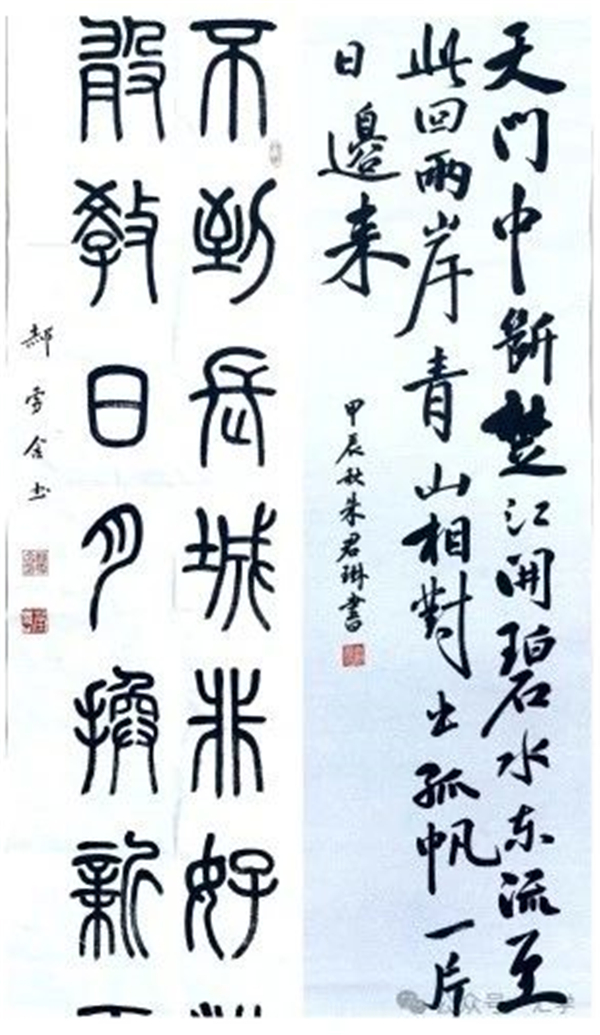 天門中斷楚江開碧水東流至
此回兩岸青山相對出孤帆一片
日邊来
甲辰秋朱君琳書
不到长城非好
敢教日月換新
郝雪金书